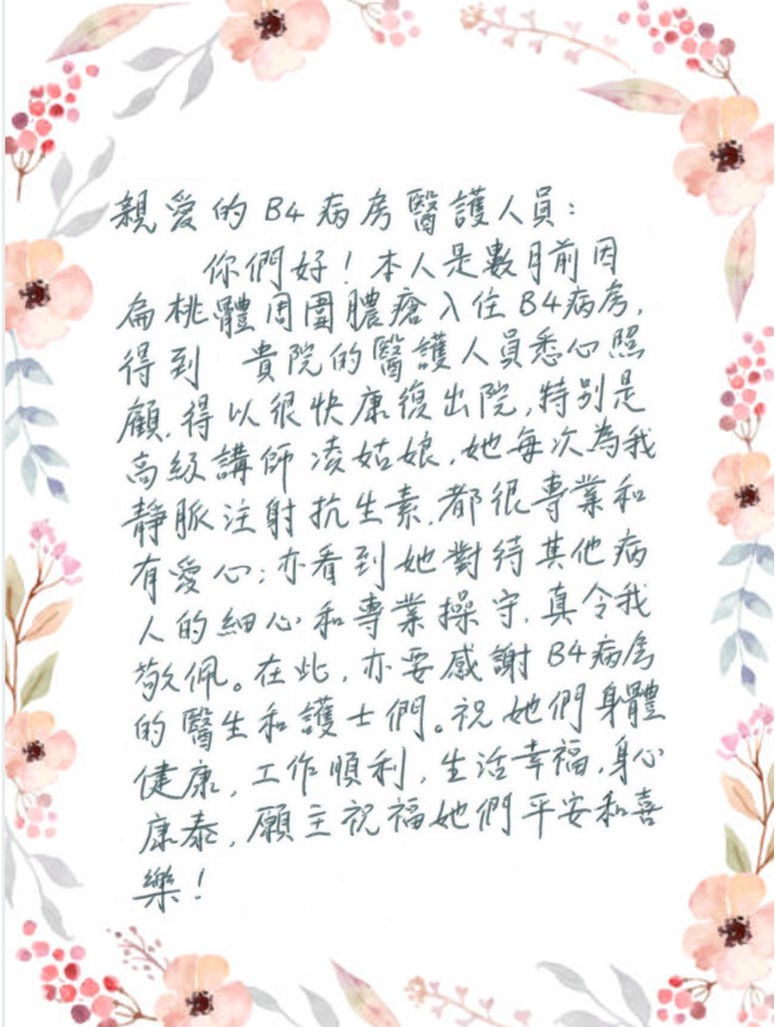 親愛的B4病房醫護人員：
你們好！本人是數月前因
扁桃體周圍膿瘡入住B4病房，
得到 貴院的醫護人員悉心照
顧，得以很快康復出院，特別是
高級講師凌姑娘，她每次為我
靜脈注射抗生素，都很專業和
有愛心；亦看到她對待其他病
人的細心和專業操守，真令我
敬佩。在此，亦要感謝B4病房
的醫生和護士們。祝她們身體
健康，工作順利，生活幸福，身心
康泰，願主祝福她們平安和喜
樂！